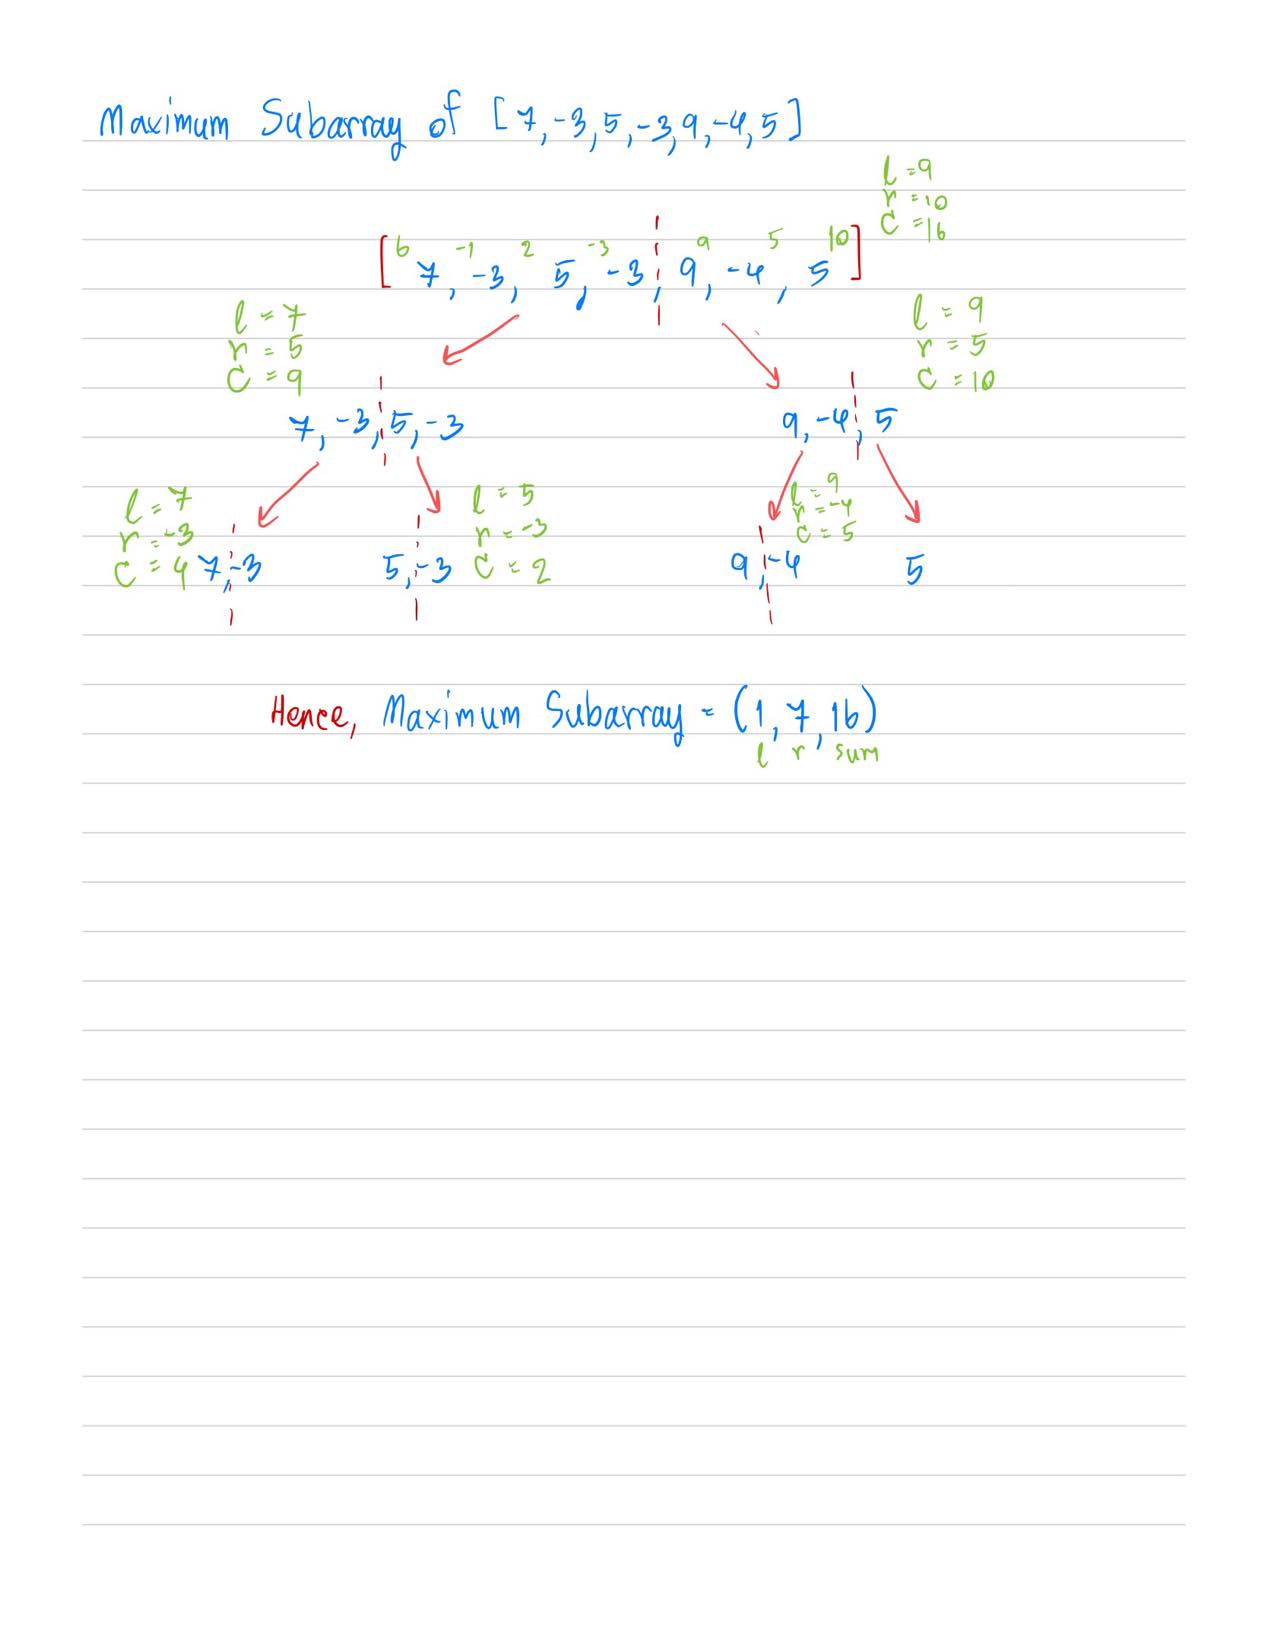 Maximum Subarray of [7,-3,5,-3,9,-4,5]
l=9
r=10
C=16
6 -1 2 -3 9 5 10
[7, -3, 5, -3, 9, -4, 5]
l=7
r=5
C=9
l=9
r=5
C=10
7, -3, 5, -3
9, -4, 5
l=7
r=-3
C=4
l=5
r=-3
C=2
l=9
r=-4
C=5
7,-3
5,-3
9,-4
5
Hence, Maximum Subarray = (1, 7, 16)
l r sum